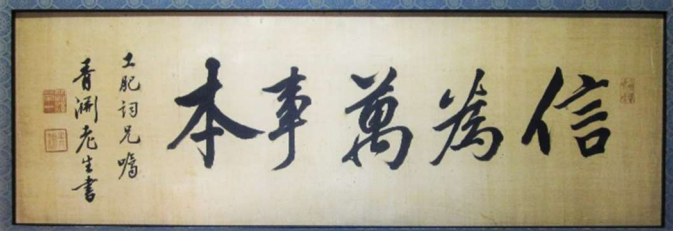 信為萬事本
土肥詞兄嘱
青淵老生書